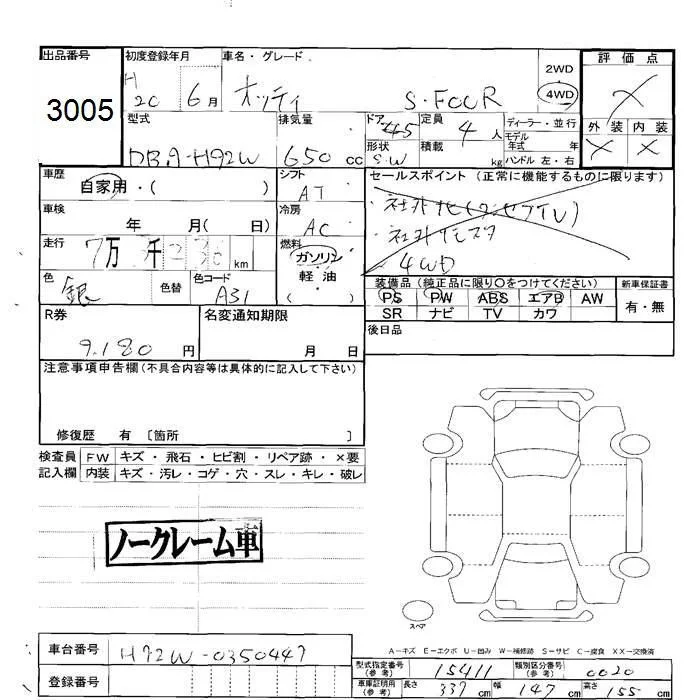 出品番号 初度登録年月 車名・グレード 2WD 評価点
3005 H20 6月 オッティ S・FOUR 4WD X
型式 排気量 ドア 定員 ディーラー・並行 外装 内装
DBA-H92W 650 cc 45 4人 モデル年式 年 X X
形状 S.W 積載 kg ハンドル 左・右
車歴 シフト セールスポイント (正常に機能するものに限ります)
自家用・( ) AT
車検 冷房 社外
年 月( 日) AC 社外
走行 燃料 4WD
7万 千 km ガソリン
色 色替 色コード 軽油 装備品 (純正品に限り○をつけてください) 新車保証書
銀 A31 ( ) PS PW ABS エアB AW 有・無
R券 名変通知期限 SR ナビ TV カワ
9,180円 月 日 後日品
注意事項申告欄(不具合内容等は具体的に記入して下さい)
修復歴 有 〔箇所 〕
検査員 FW キズ・飛石・ヒビ割・リペア跡・×要
記入欄 内装 キズ・汚レ・コゲ・穴・スレ・キレ・破レ
ノークレーム車
スペア
A-キズ E-エクボ U-凹み W-補修跡 S-サビ C-腐食 XX-交換済
車台番号 H92W-0350447 型式指定番号(参考) 15411 類別区分番号(参考) 0020
登録番号 車庫証明用(参考) 長さ 339cm 幅 147cm 高さ 155cm